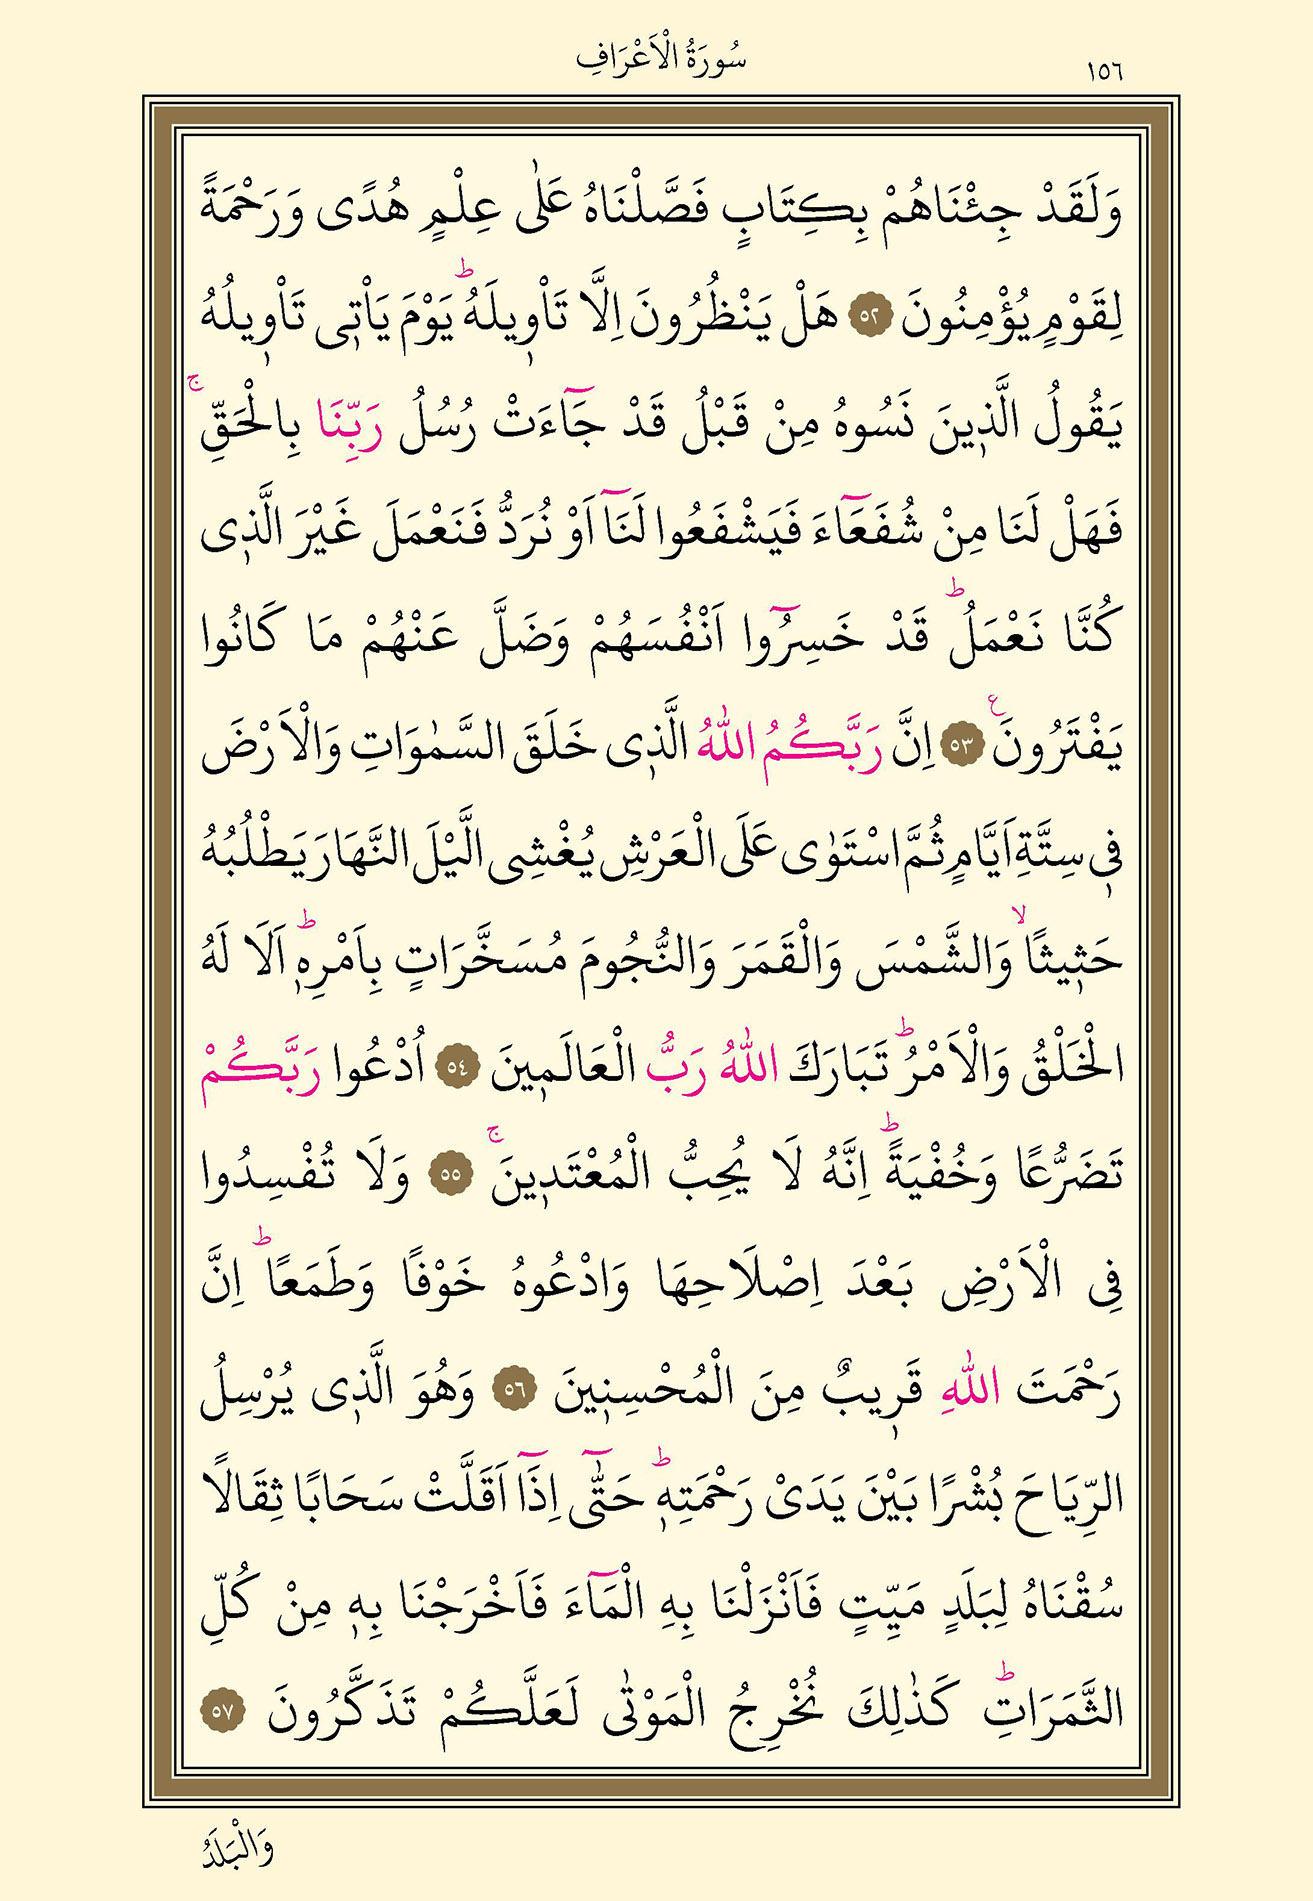 ١٥٦
سُورَةُ الْاَعْرَافِ
وَلَقَدْ جِئْنَاهُمْ بِكِتَابٍ فَصَّلْنَاهُ عَلٰى عِلْمٍ هُدًى وَرَحْمَةً
لِقَوْمٍ يُؤْمِنُونَ ﴿٥٢﴾ هَلْ يَنْظُرُونَ اِلَّا تَاْو۪يلَهُۜ يَوْمَ يَاْت۪ى تَاْو۪يلُهُ
يَقُولُ الَّذ۪ينَ نَسُوهُ مِنْ قَبْلُ قَدْ جَٓاءَتْ رُسُلُ رَبِّنَا بِالْحَقِّۚ
فَهَلْ لَنَا مِنْ شُفَعَٓاءَ فَيَشْفَعُوا لَنَٓا اَوْ نُرَدُّ فَنَعْمَلَ غَيْرَ الَّذ۪ى
كُنَّا نَعْمَلُۜ قَدْ خَسِرُٓوا اَنْفُسَهُمْ وَضَلَّ عَنْهُمْ مَا كَانُوا
يَفْتَرُونَ۟ ﴿٥٣﴾ اِنَّ رَبَّكُمُ اللّٰهُ الَّذ۪ى خَلَقَ السَّمٰوَاتِ وَالْاَرْضَ
ف۪ى سِتَّةِ اَيَّامٍ ثُمَّ اسْتَوٰى عَلَى الْعَرْشِ يُغْشِى الَّيْلَ النَّهَارَ يَطْلُبُهُ
حَث۪يثًاۙ وَالشَّمْسَ وَالْقَمَرَ وَالنُّجُومَ مُسَخَّرَاتٍ بِاَمْرِه۪ۜ اَلَا لَهُ
الْخَلْقُ وَالْاَمْرُۜ تَبَارَكَ اللّٰهُ رَبُّ الْعَالَم۪ينَ ﴿٥٤﴾ اُدْعُوا رَبَّكُمْ
تَضَرُّعًا وَخُفْيَةًۜ اِنَّهُ لَا يُحِبُّ الْمُعْتَد۪ينَۚ ﴿٥٥﴾ وَلَا تُفْسِدُوا
فِى الْاَرْضِ بَعْدَ اِصْلَاحِهَا وَادْعُوهُ خَوْفًا وَطَمَعًاۜ اِنَّ
رَحْمَتَ اللّٰهِ قَر۪يبٌ مِنَ الْمُحْسِن۪ينَ ﴿٥٦﴾ وَهُوَ الَّذ۪ى يُرْسِلُ
الرِّيَاحَ بُشْرًا بَيْنَ يَدَىْ رَحْمَتِه۪ۜ حَتّٰٓى اِذَٓا اَقَلَّتْ سَحَابًا ثِقَالًا
سُقْنَاهُ لِبَلَدٍ مَيِّتٍ فَاَنْزَلْنَا بِهِ الْمَٓاءَ فَاَخْرَجْنَا بِه۪ مِنْ كُلِّ
الثَّمَرَاتِۜ كَذٰلِكَ نُخْرِجُ الْمَوْتٰى لَعَلَّكُمْ تَذَكَّرُونَ ﴿٥٧﴾
وَالْبَلَدُ